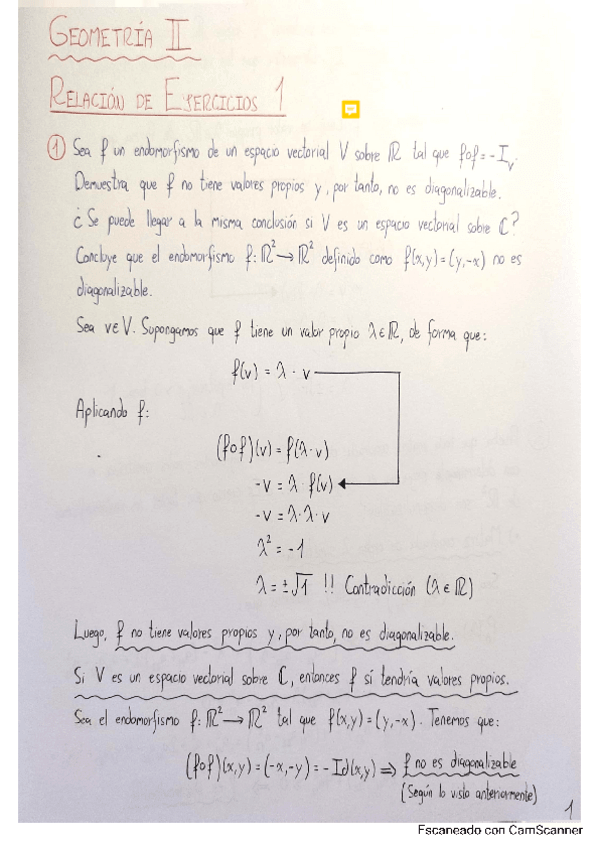 GEOMETRÍA II
RELACIÓN DE EJERCICIOS 1
① Sea f un endomorfismo de un espacio vectorial V sobre ℝ tal que f∘f = -I_V.
Demuestra que f no tiene valores propios y, por tanto, no es diagonalizable.
¿Se puede llegar a la misma conclusión si V es un espacio vectorial sobre ℂ?
Concluye que el endomorfismo f: ℝ² → ℝ² definido como f(x,y) = (y,-x) no es
diagonalizable.
Sea v ∈ V. Supongamos que f tiene un valor propio λ ∈ ℝ, de forma que:
f(v) = λ · v
Aplicando f:
(f∘f)(v) = f(λ · v)
-v = λ · f(v)
-v = λ · λ · v
λ² = -1
λ = ±√1 !! Contradicción (λ ∈ ℝ)
Luego, f no tiene valores propios y, por tanto, no es diagonalizable.
Si V es un espacio vectorial sobre ℂ, entonces f sí tendría valores propios.
Sea el endomorfismo f: ℝ² → ℝ² tal que f(x,y) = (y,-x). Tenemos que:
(f∘f)(x,y) = (-x,-y) = -Id(x,y) ⇒ f no es diagonalizable
(Según lo visto anteriormente)
1
Escaneado con CamScanner